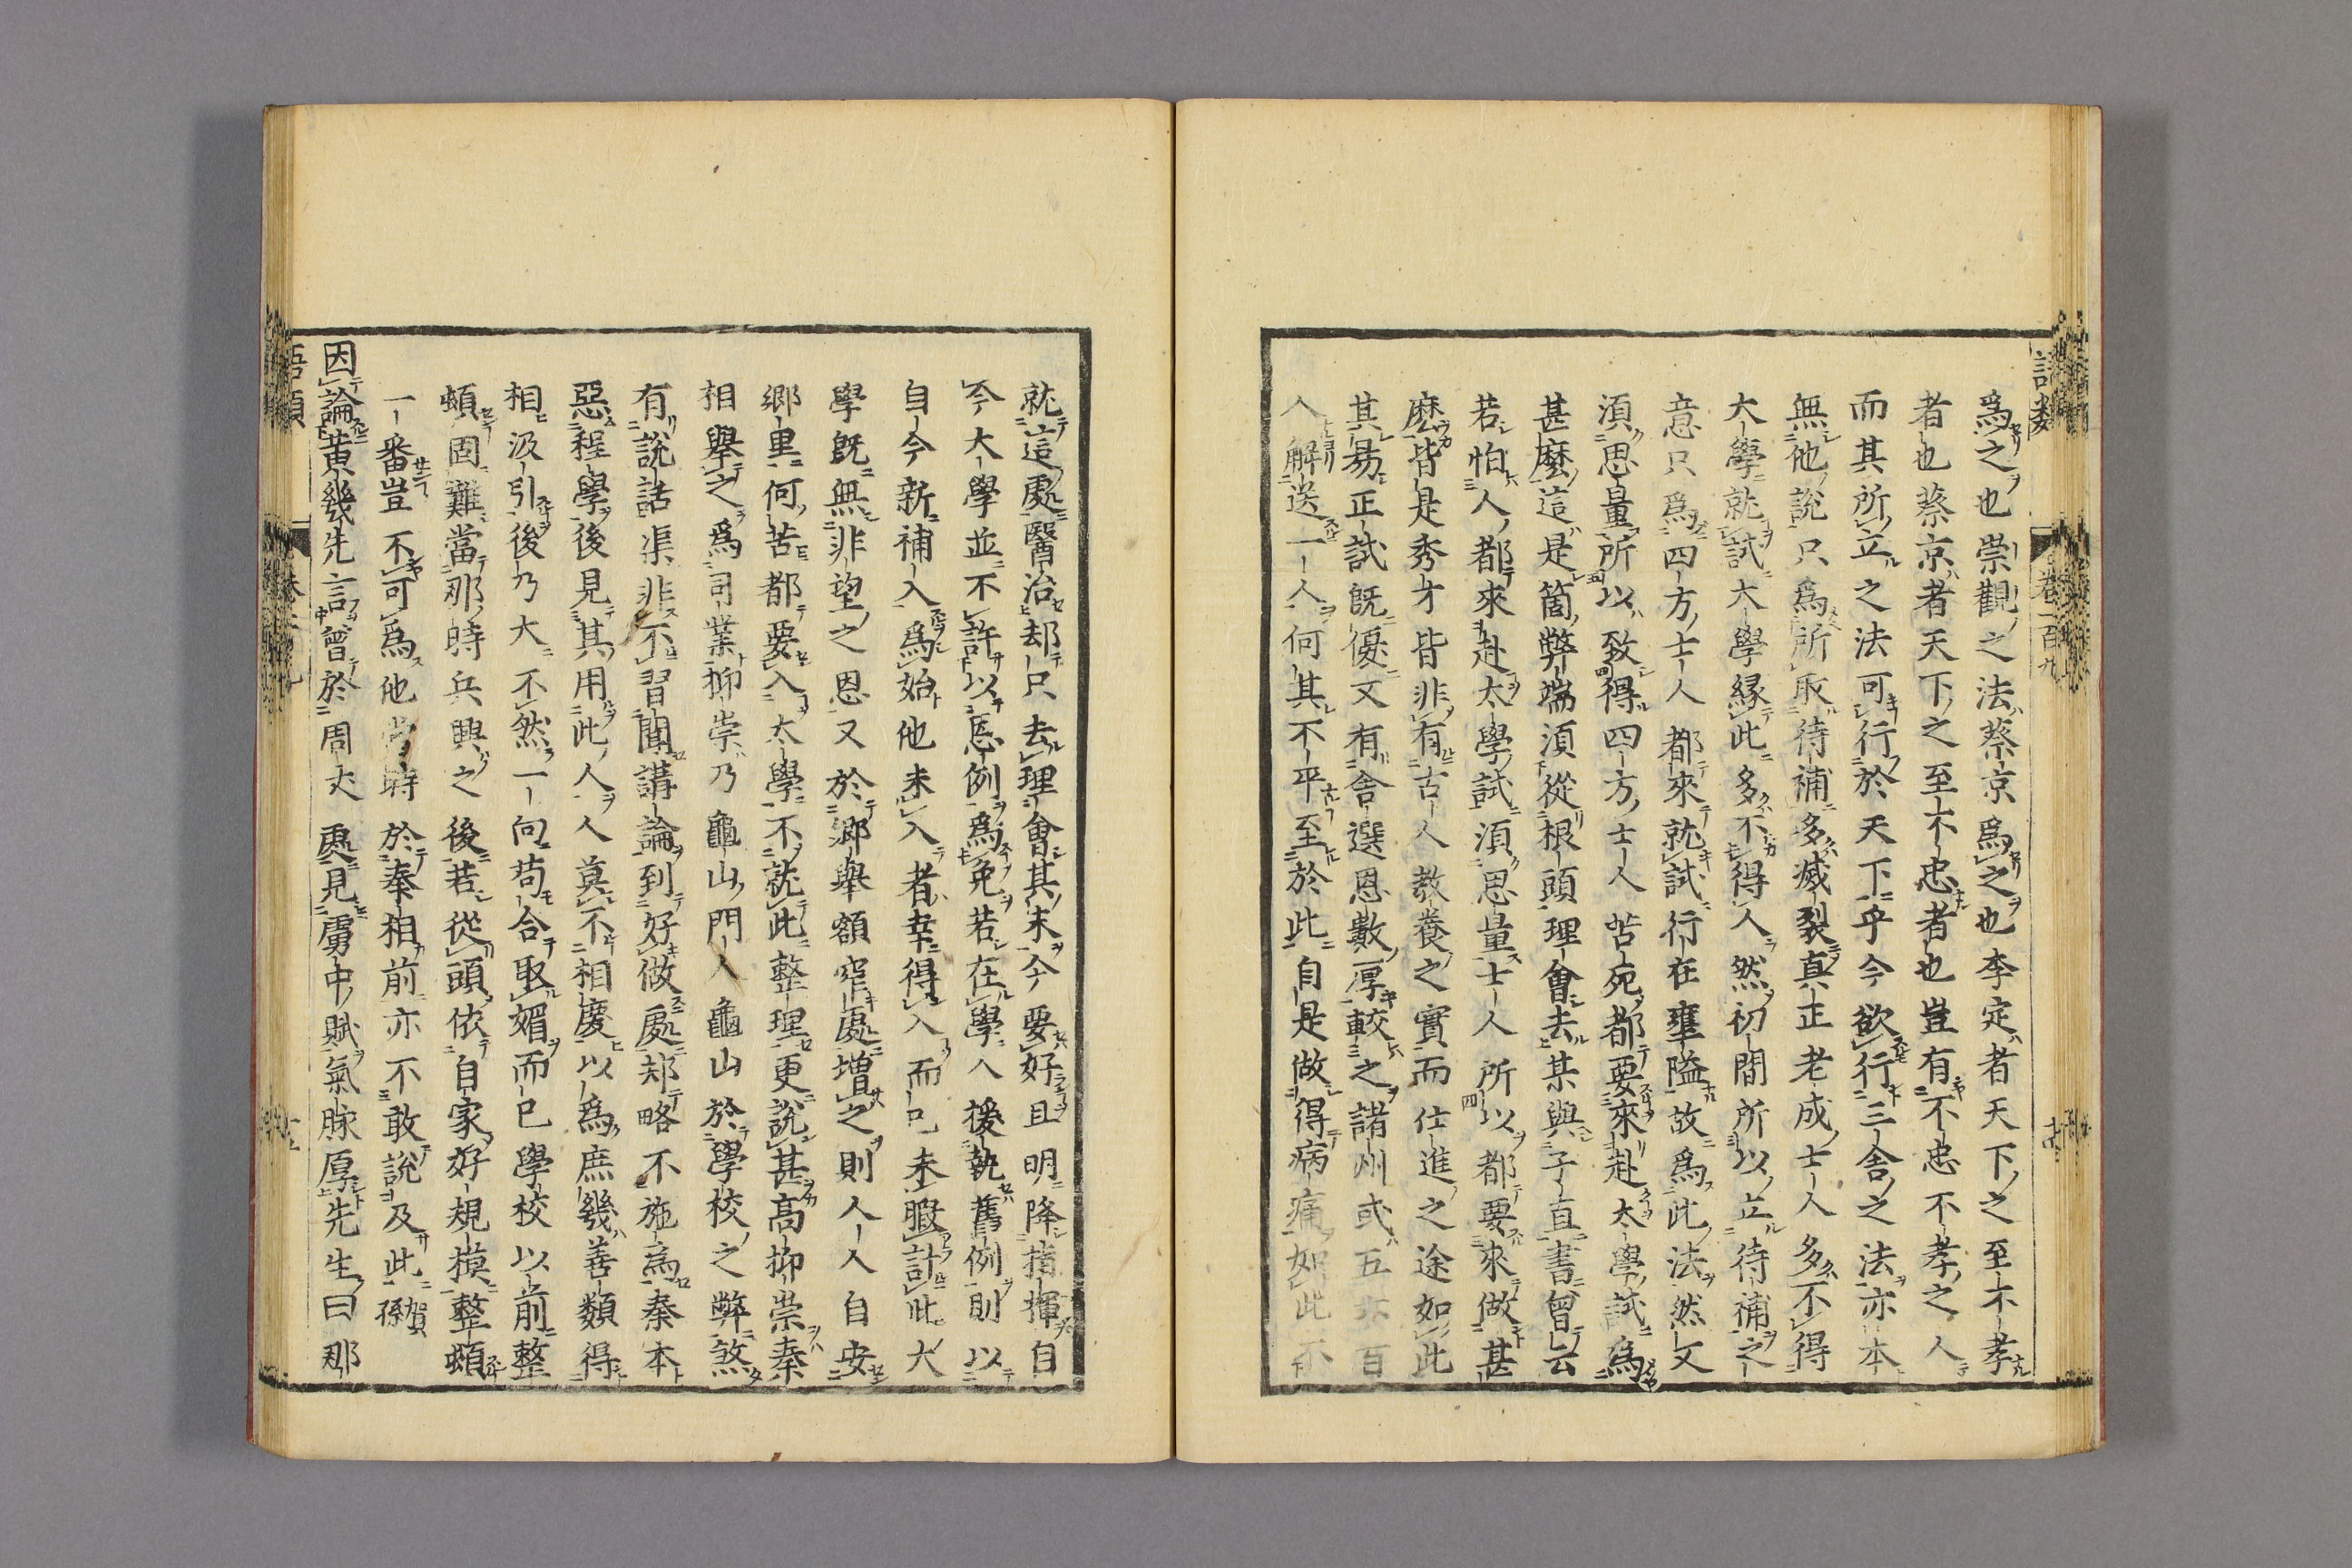 爲之也崇觀之法蔡京爲之也李定者天下之至不孝
者也蔡京者天下之至不忠者也豈有不忠不孝之人
而其所立之法可行於天下乎今欲行三舍之法亦本
無他說只爲所取待補多滅裂真正老成士人多不得
大學就試大學緣此多不得人然初間所以立待補之
意只爲四方士人都來就試行在壅隘故爲此法然又
須思量所以致得四方士人苦死都要來赴太學試爲
甚麼這是箇弊端須從根頭理會去某與子直書曾云
若怕人都來赴太學試須思量士人所以都要來做甚
麽皆是秀才皆非有古人教養之實而仕進之途如此
其易正試既優又有舍選恩數厚較之諸州或五六百
人解送一人何其不平至於此自是做得病痛如此不
就這處醫治却只去理會其末今要好且明降指揮自
今大學並不許以恩例爲免若在學人援執舊例則以
自今新補入爲始他未入者幸得入而已未暇計此太
學既無非望之恩又於鄉舉額窄處增之則人人自安
鄉里何苦都要入太學不就此整理更說甚高抑崇秦
相舉之爲司業抑崇乃龜山門人龜山於學校之弊煞
有說話渠非不習聞講論到好做處却略不施爲秦本
惡程學後見其用此人人莫不相慶以爲庶幾善類得
相汲引後乃大不然一向苟合取媚而已學校以前整
頓固難當那時兵興之後若從頭依自家好規模整頓
一番豈不可爲他當時於秦相前亦不敢說及此賀孫
因論黃幾先言曾於周丈處見虜中賦氣脉厚先生曰那
語類 卷一百九
語類